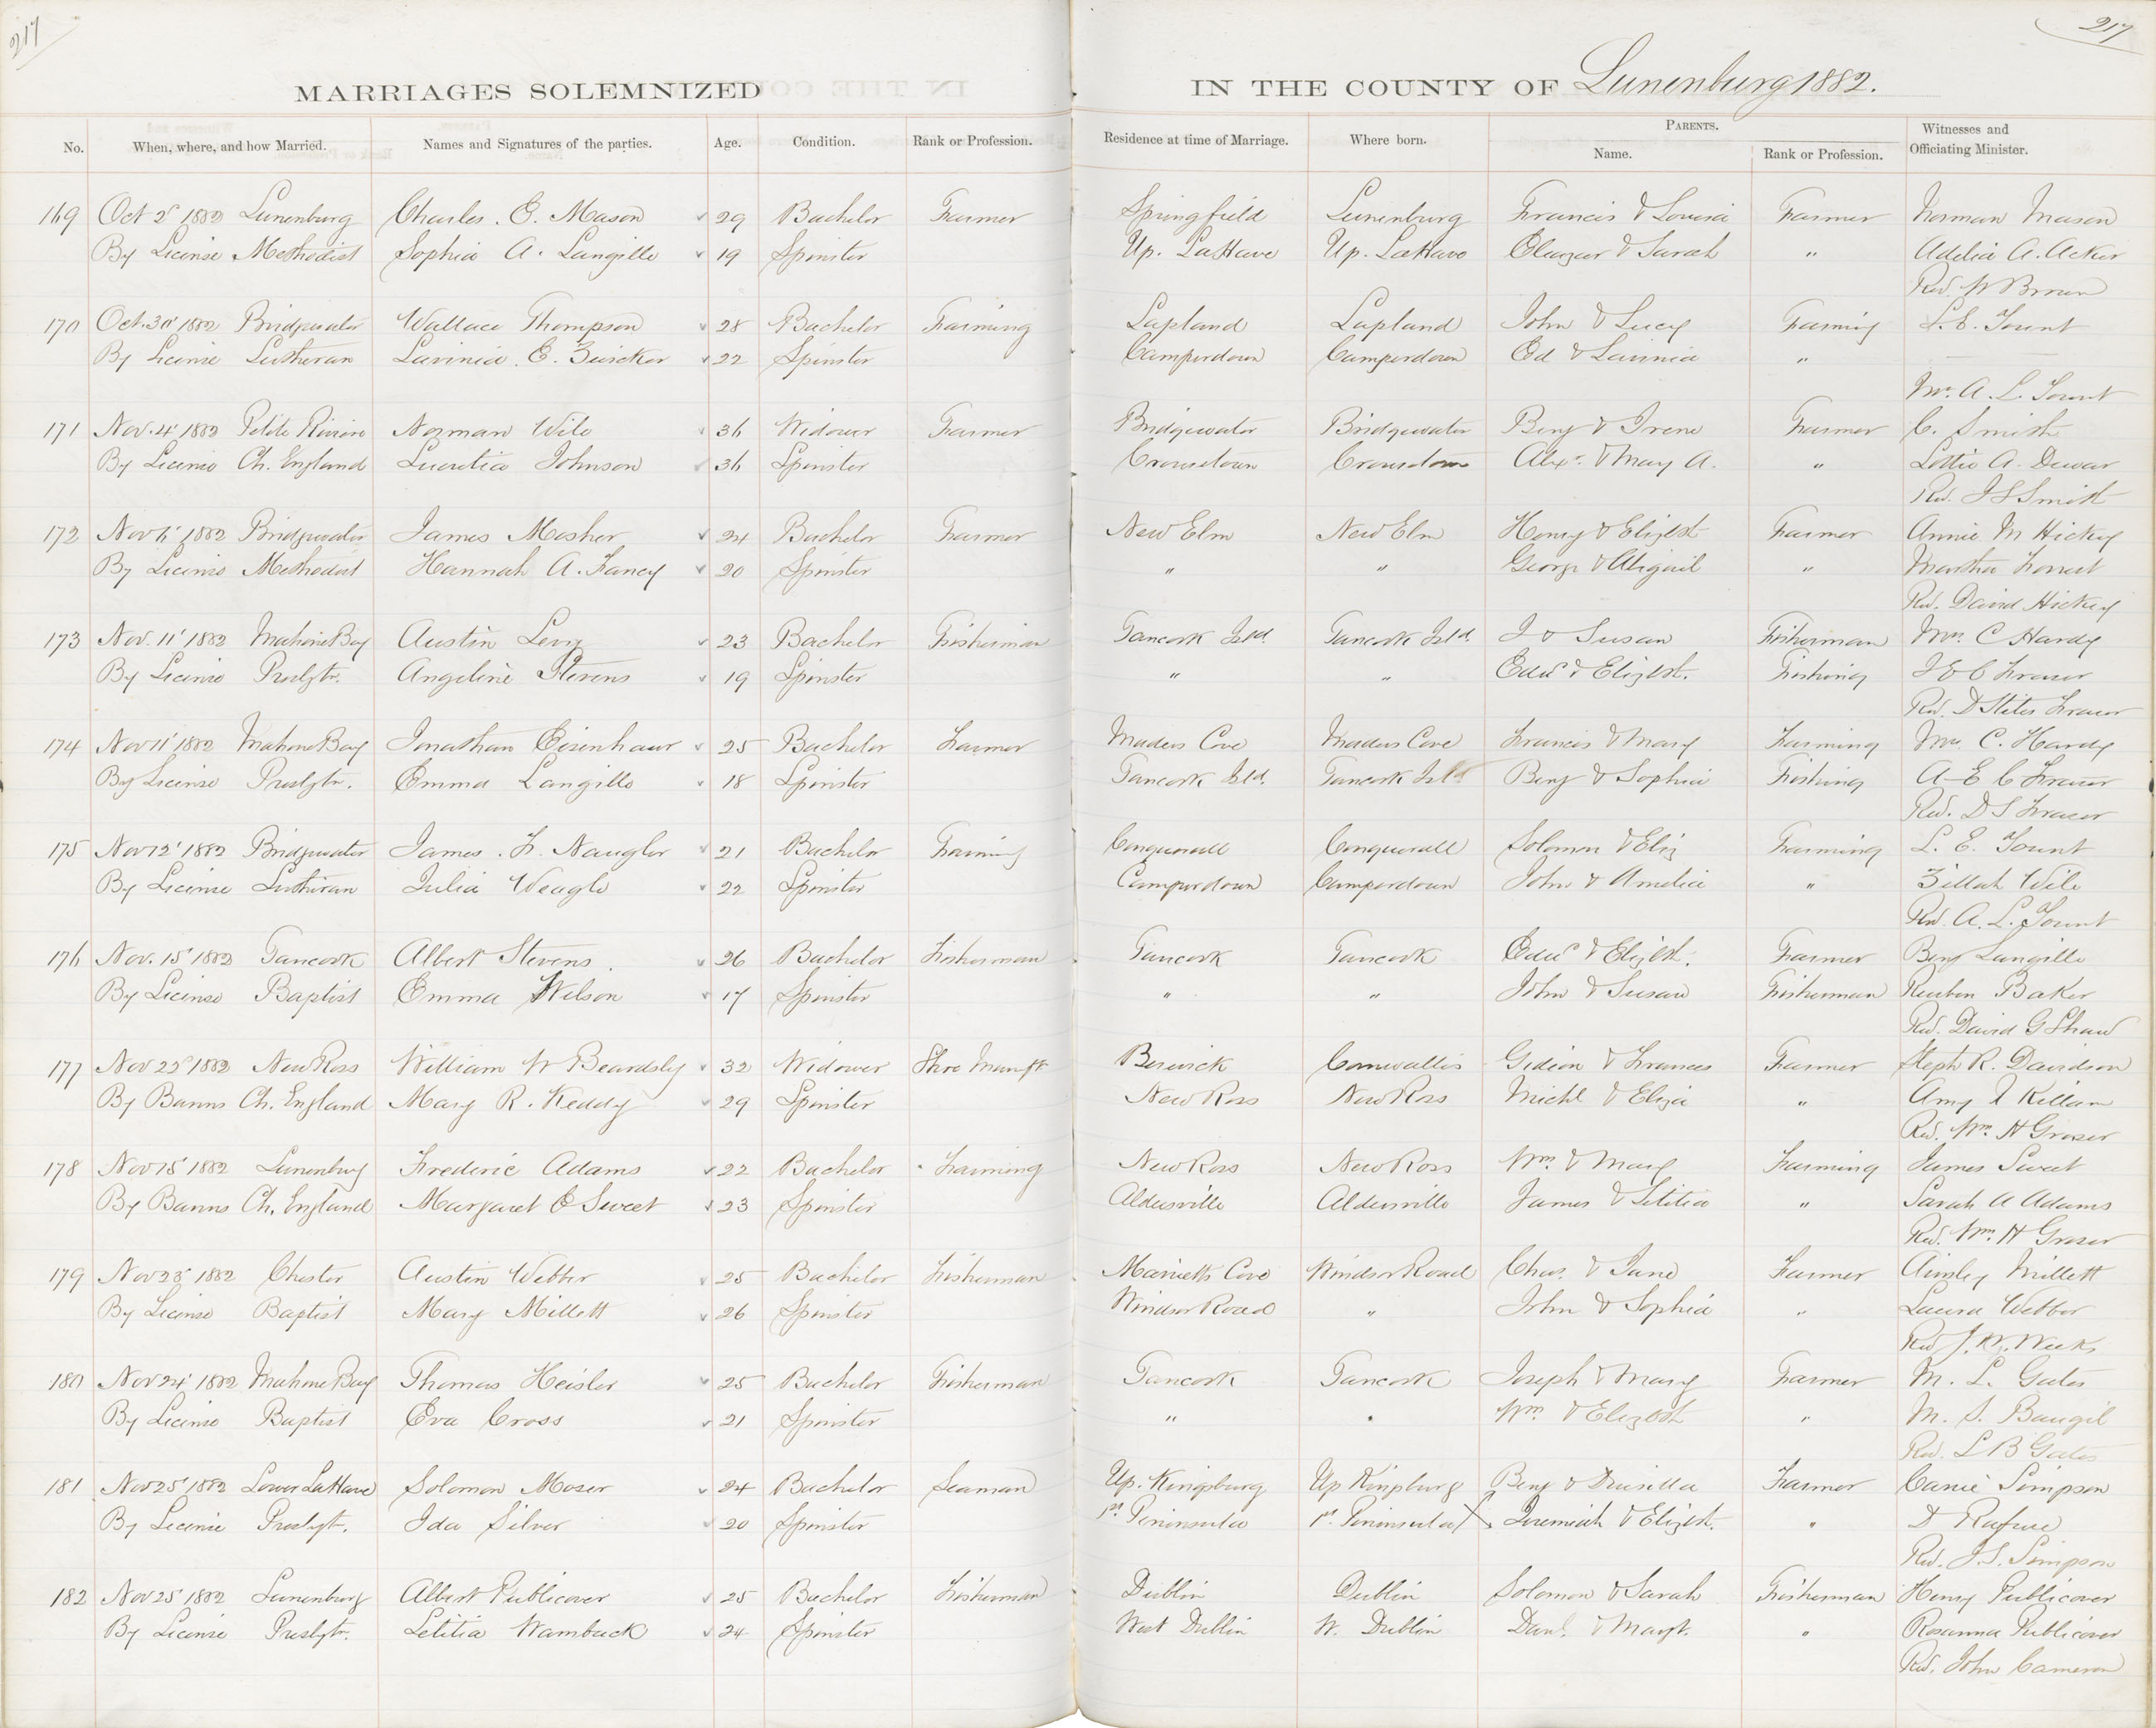 217
217
MARRIAGES SOLEMNIZED IN THE COUNTY OF Lunenburg 1882.
No. When, where, and how Married. Names and Signatures of the parties. Age. Condition. Rank or Profession. Residence at time of Marriage. Where born. PARENTS. Name. Rank or Profession. Witnesses and Officiating Minister.
169 Oct 2 1882 Lunenburg Charles. E. Mason 29 Bachelor Farmer Springfield Lunenburg Francis & Louisa Farmer Norman Mason
By License Methodist Sophia A. Langille 19 Spinster Up. LaHave Up. LaHave Eleazar & Sarah " Adelia A. Acker
Rev W Brown
170 Oct. 30' 1882 Bridgwater Wallace Thompson 28 Bachelor Farming Lapland Lapland John & Lucy Farming L. E. Yount
By License Lutheran Lavinia. E. Zwicker 22 Spinster Camperdown Camperdown Ed & Lavinia "
A. L. Yount
171 Nov. 4' 1882 Petite Riviere Norman Wile 36 Widower Farmer Bridgewater Bridgewater Benj & Irene Farmer C. Smith
By License Ch. England Lucretia Johnson 36 Spinster Crousetown Crousetown Alexr. & Mary A. " Lottie A. Dewar
Rev. J S Smith
172 Nov 6' 1882 Bridgwater James Mosher 24 Bachelor Farmer New Elm New Elm Henry & Elizbt Farmer Annie M Hickey
By License Methodist Hannah A. Fancy 20 Spinster " " George & Abigail " Martha Forrest
Rev. David Hickey
173 Nov. 11' 1882 Mahone Bay Austin Levy 23 Bachelor Fisherman Tancook Isld. Tancook Isld. J & Susan Fisherman Mrs. C Hardy
By License Presbytr. Angeline Stevens 19 Spinster " " Edwd & Elizbt. Fishing J E C Fraser
Rev. D Stiles Fraser
174 Nov 11' 1882 Mahone Bay Jonathan Eisenhaur 25 Bachelor Farmer Maders Cove Maders Cove Francis & Mary Farming Mrs. C. Hardy
By License Presbytr. Emma Langille 18 Spinster Tancook Isld. Tancook Isld Benj & Sophia Fishing A E C Fraser
Rev. D S Fraser
175 Nov 12' 1882 Bridgwater James. F. Naugler 21 Bachelor Farming Conquerall Conquerall Solomon & Eliz Farming L. E. Yount
By License Lutheran Julia Weagle 22 Spinster Camperdown Camperdown John & Amelia " Zillah Wile
Rev. A. L. Yount
176 Nov. 15' 1882 Tancook Albert Stevens. 26 Bachelor Fisherman Tancook Tancook Edwd & Elizbt. Farmer Benj Langille
By License Baptist Emma Wilson 17 Spinster " " John & Susan Fisherman Reuben Baker
Rev. David G Shaw
177 Nov 22' 1882 New Ross William W Beardsly 32 Widower Shoe Manuft Berwick Cornwallis Gideon & Frances Farmer Steph R. Davidson
By Banns Ch. England Mary R. Keddy 29 Spinster New Ross New Ross Michl & Eliza " Amy Killam
Rev. Wm. H Groser
178 Nov 15' 1882 Lunenburg Frederic Adams 22 Bachelor Farming New Ross New Ross Wm. & Mary Farming James Sweet
By Banns Ch. England Margaret E Sweet 23 Spinster Aldersville Aldersville James & Letitia " Sarah A Adams
Rev. Wm. H Groser
179 Nov 23' 1882 Chester Austin Webber 25 Bachelor Fisherman Marriotts Cove Windsor Road Chas. & Jane Farmer Ainsley Millett
By License Baptist Mary Millett 26 Spinster Windsor Road " John & Sophia " Laura Webber
Rev J. W. Weeks
180 Nov 24' 1882 Mahone Bay Thomas Heisler 25 Bachelor Fisherman Tancook Tancook Joseph & Mary Farmer M. L. Gates
By License Baptist Eva Cross 21 Spinster " " Wm. & Elizbth " M. S.
Rev. L B Gates
181 Nov 25' 1882 Lower LaHave Solomon Moser 24 Bachelor Seaman Up. Kingsburg Up Kingsburg Benj & Drusilla Farmer Simpson
By License Presbyt. Ida Silver 20 Spinster 1st. Peninsula 1st. Peninsula X Jeremiah & Elizbt. "
Rev. J. S. Simpson
182 Nov 25' 1882 Lunenburg Albert Publicover 25 Bachelor Fisherman Dublin Dublin Solomon & Sarah Fisherman Henry Publicover
By License Presbytr. Letitia Wamback 24 Spinster West Dublin W. Dublin Danl. & Margt. " Rosanna Publicover
Rev. John Cameron